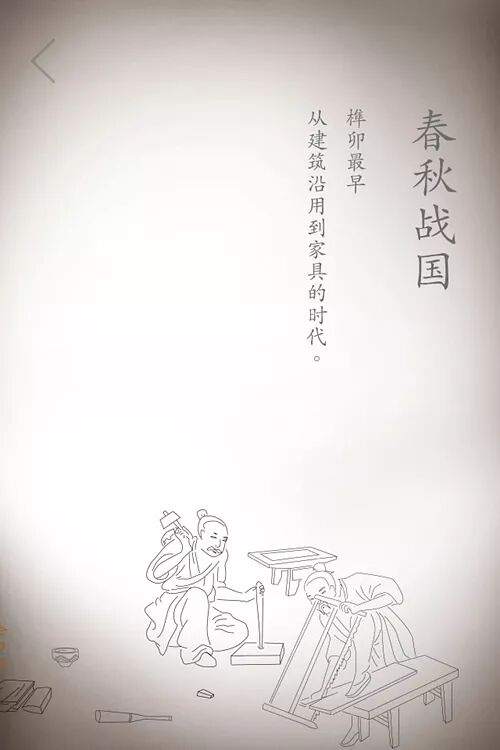 春秋战国
榫卯最早
从建筑沿用到家具的时代。